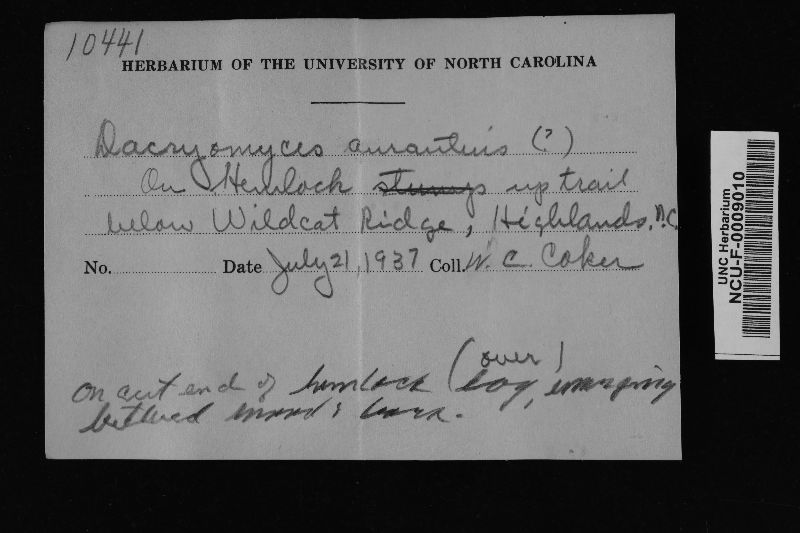 10441
HERBARIUM OF THE UNIVERSITY OF NORTH CAROLINA
Dacryomyces aurantius (?)
On Hemlock stumps up trail
below Wildcat Ridge, Highlands, N.C.
No. Date July 21, 1937 Coll. W. C. Coker
(over)
on cut end of hemlock log, emerging
between wood & bark.
UNC Herbarium
NCU-F-0009010